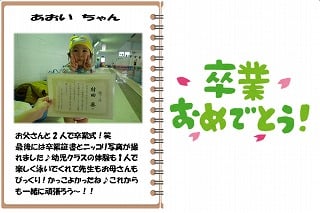 あおい ちゃん
お父さんと2人で卒業式!笑
最後には卒業証書とニッコリ写真が撮
れました♪幼児クラスの体験も1人で
楽しく泳いでくれて先生もお母さんも
びっくり!かっこよかったね♪これから
も一緒に頑張ろう~!!
卒業
おめでとう!